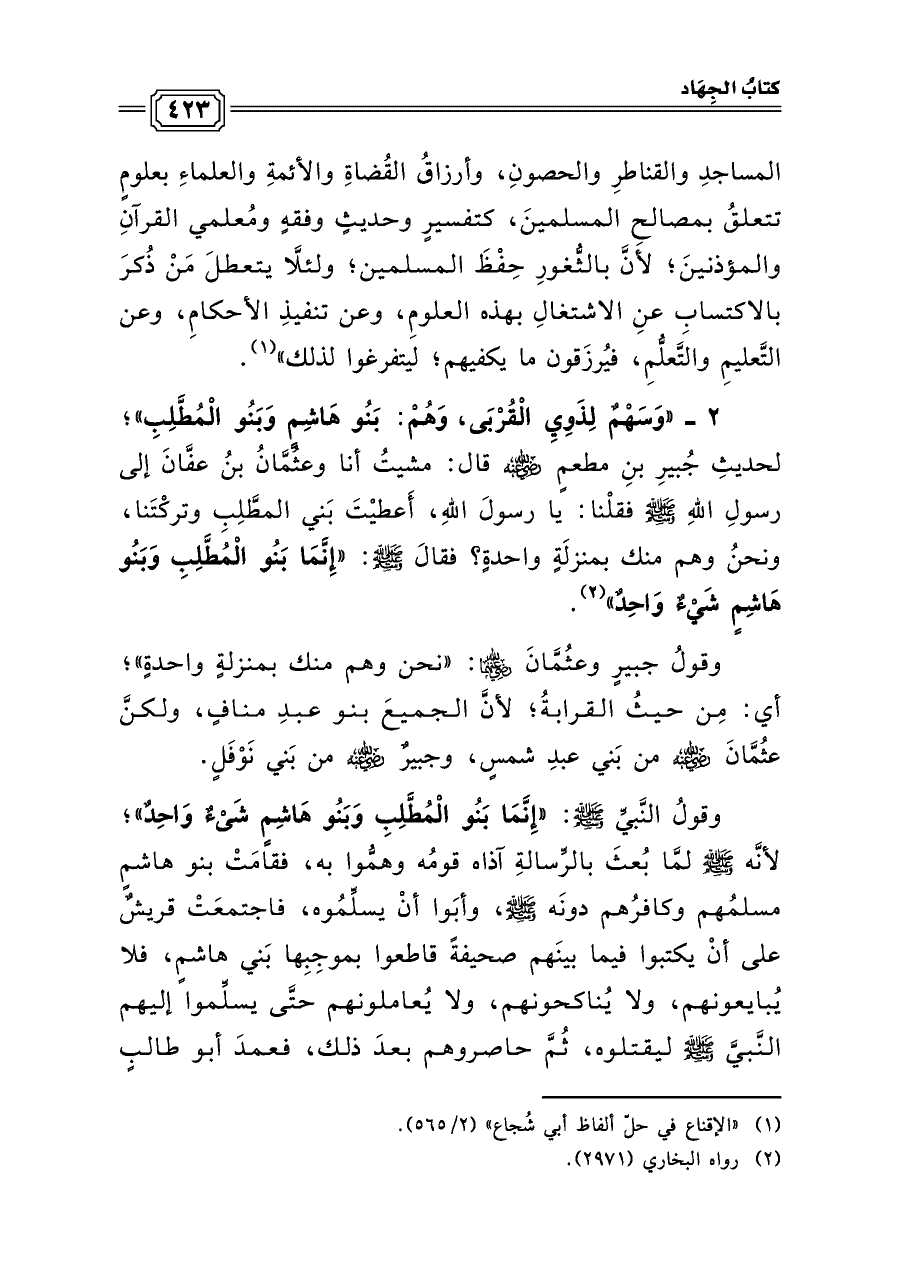 كتابُ الجِهَاد
٤٢٣
المساجدِ والقناطرِ والحصونِ، وأرزاقُ القُضاةِ والأئمةِ والعلماءِ بعلومٍ
تتعلقُ بمصالحِ المسلمينَ، كتفسيرٍ وحديثٍ وفقهٍ ومُعلمي القرآنِ
والمؤذنينَ؛ لأنَّ بالثُّغورِ حِفْظَ المسلمين؛ ولئلَّا يتعطلَ مَنْ ذُكرَ
بالاكتسابِ عنِ الاشتغالِ بهذه العلومِ، وعن تنفيذِ الأحكامِ، وعن
التَّعليمِ والتَّعلُّمِ، فيُرزَقون ما يكفيهم؛ ليتفرغوا لذلك»(١).
٢ ـ «وَسَهْمٌ لِذَوِي الْقُرْبَى، وَهُمْ: بَنُو هَاشِمٍ وَبَنُو الْمُطَّلِبِ»؛
لحديثِ جُبيرِ بنِ مطعمٍ رضي الله عنه قال: مشيتُ أنا وعثُمَّانُ بنُ عفَّانَ إلى
رسولِ اللهِ ﷺ فقلْنا: يا رسولَ اللهِ، أَعطيْتَ بَني المطَّلِبِ وتركْتَنا،
ونحنُ وهم منك بمنزلَةٍ واحدةٍ؟ فقالَ ﷺ: «إِنَّمَا بَنُو الْمُطَّلِبِ وَبَنُو
هَاشِمٍ شَيْءٌ وَاحِدٌ»(٢).
وقولُ جبيرٍ وعثُمَّانَ رضي الله عنهما: «نحن وهم منك بمنزلةٍ واحدةٍ»؛
أي: مِن حيثُ القرابةُ؛ لأنَّ الجميعَ بنو عبدِ منافٍ، ولكنَّ
عثُمَّانَ رضي الله عنه من بَني عبدِ شمسٍ، وجبيرٌ رضي الله عنه من بَني نَوْفَلٍ.
وقولُ النَّبيِّ ﷺ: «إِنَّمَا بَنُو الْمُطَّلِبِ وَبَنُو هَاشِمٍ شَيْءٌ وَاحِدٌ»؛
لأنَّه ﷺ لمَّا بُعثَ بالرِّسالةِ آذاه قومُه وهمُّوا به، فقامَتْ بنو هاشمٍ
مسلمُهم وكافرُهم دونَه ﷺ، وأبَوا أنْ يسلِّمُوه، فاجتمعَتْ قريشٌ
على أنْ يكتبوا فيما بينَهم صحيفةً قاطعوا بموجِبِها بَني هاشمٍ، فلا
يُبايعونهم، ولا يُناكحونهم، ولا يُعاملونهم حتَّى يسلِّموا إليهم
النَّبيَّ ﷺ ليقتلوه، ثُمَّ حاصروهم بعدَ ذلك، فعمدَ أبو طالبٍ
(١) «الإقناع في حلّ ألفاظ أبي شُجاع» (٥٦٥/٢).
(٢) رواه البخاري (٢٩٧١).